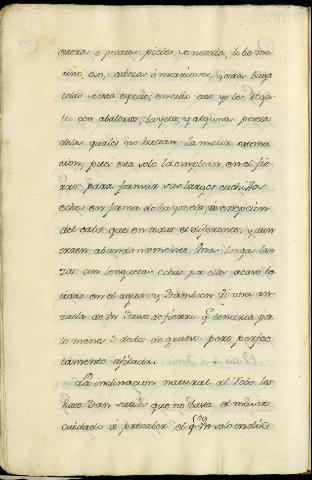 esteras o petates, pieles de nutria, lobo ma
rino, oso, cabezas ó morriones, y otras baga
telas de esta especie; en cuio caso yo les rega
lo con abalorios, bayeta, y algunas piezas
delas quales no hacian la maior estima
cion, pues esta solo la emplean en el fie
rro para formar sus largos cuchillos
echos en forma de bayoneta, a excepcion
del cabo que en todos es diferente. y aun
traen abundantemente Unas largas lan
zas con lenguetas cabos por ellos acaso ba
tidas en el agua; y tambien ví una an
zuela de Un trozo de fierro q.e tendria por
lo menos 3 dedos de grueso pero perfec
tamente afilada.
La inclinacion natural al Robo los
hace tan sutiles que no basta el maior
cuidado á precaber el q.e Un solo indio